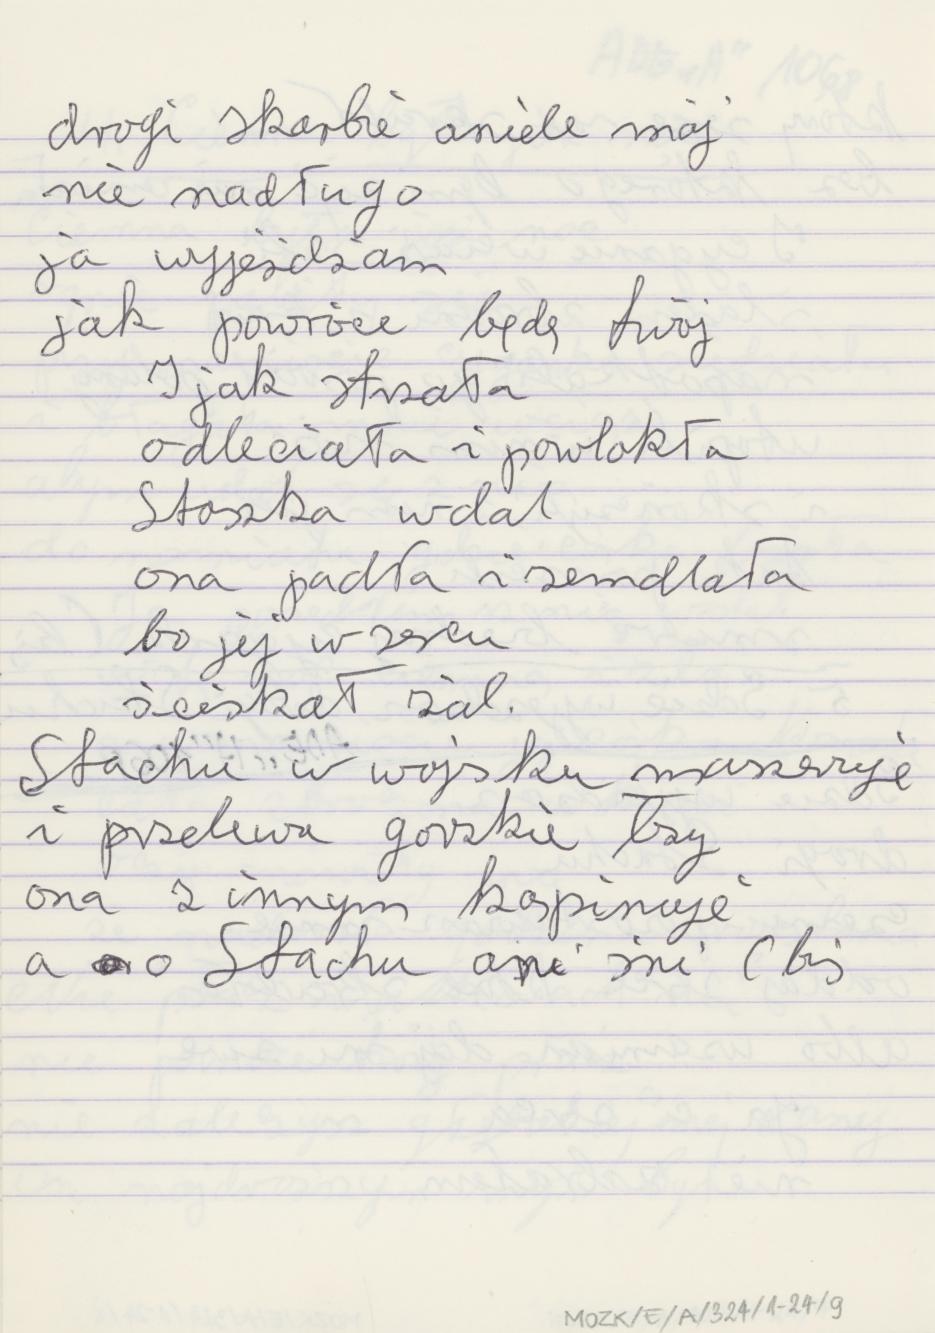 drogi skarbie aniele mój
nie nadługo
ja wyjeżdżam
jak powróce będę twój
I jak strzała
odleciała i powlokła
Staszka wdal
ona padła i zemdlała
bo jej w sercu
ściskał żal.
Stachu w wojsku maszeruje
i przelewa gorzkie łzy
ona z innym kaspinuje
a o Stachu ani śni (bis
MOZK/E/A/324/1-24/9